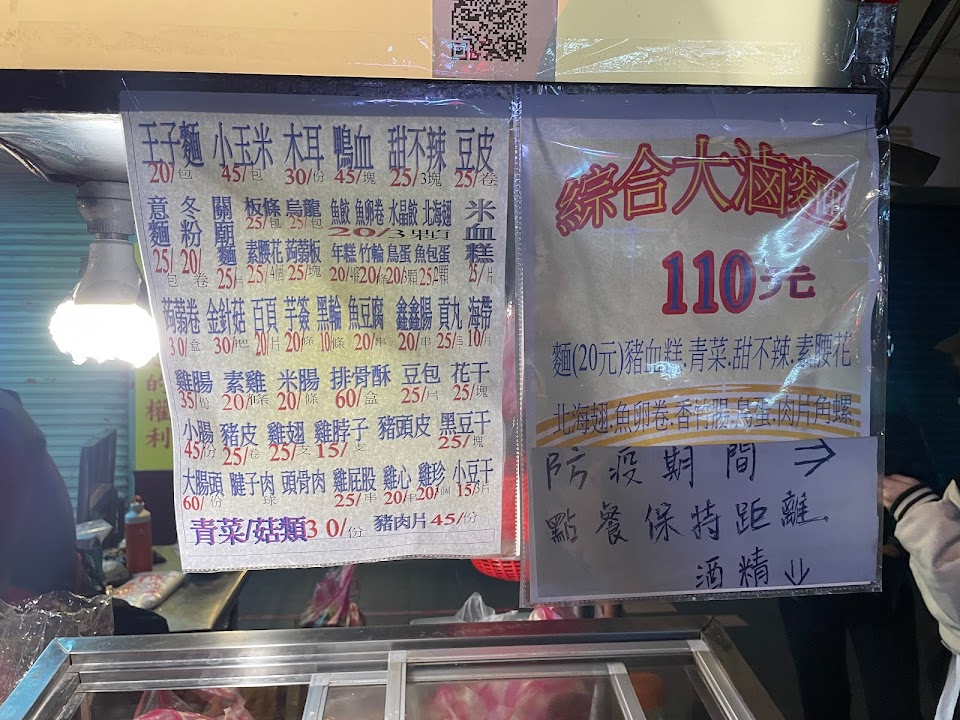 王子麵 小玉米 木耳 鴨血 甜不辣 豆皮
20/包 45/包 30/份 45/塊 25/3塊 25/卷
意麵 冬粉 關廟麵 板條 烏龍 魚餃 魚卵卷 水晶餃 北海翅 米血糕
25/包 20/卷 25/片 25/包 25/包 20/3顆 25/片
素腰花 蒟蒻板 年糕 竹輪 鳥蛋 魚包蛋
25/4個 25/塊 20/4條 20/條 20/3顆 25/2顆
蒟蒻卷 金針菇 百頁 芋簽 黑輪 魚豆腐 鑫鑫腸 貢丸 海帶
30/盒 30/把 20/片 20/條 10/條 20/串 20/串 25/串 10/片
雞腸 素雞 米腸 排骨酥 豆包 花干
35/份 20/條 20/條 60/盒 25/片 25/塊
小腸 豬皮 雞翅 雞脖子 豬頭皮 黑豆干
45/份 25/卷 25/支 15/支 25/塊
大腸頭 腱子肉 頭骨肉 雞屁股 雞心 雞珍 小豆干
60/份 球 25/串 20/串 20/個 15/3片
青菜/菇類30/份 豬肉片45/份
綜合大滷麵
110元
麵(20元)豬血糕.青菜.甜不辣.素腰花
北海翅.魚卵卷.香竹腸.鳥蛋.肉片角螺
防疫期間→
點餐保持距離.
酒精↓
的權利